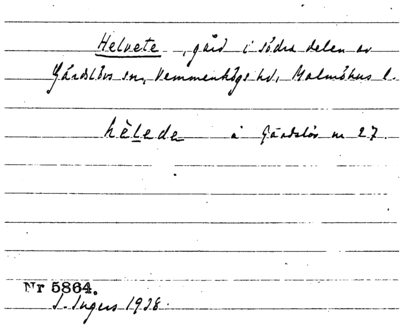 Helvete, gård i södra delen av
Gärdslövs sn, Vemmenhögs hd, Malmöhus l.
hèlede å Gärdslöv nr 27.
Nr 5864.
I. Ingers 1928.